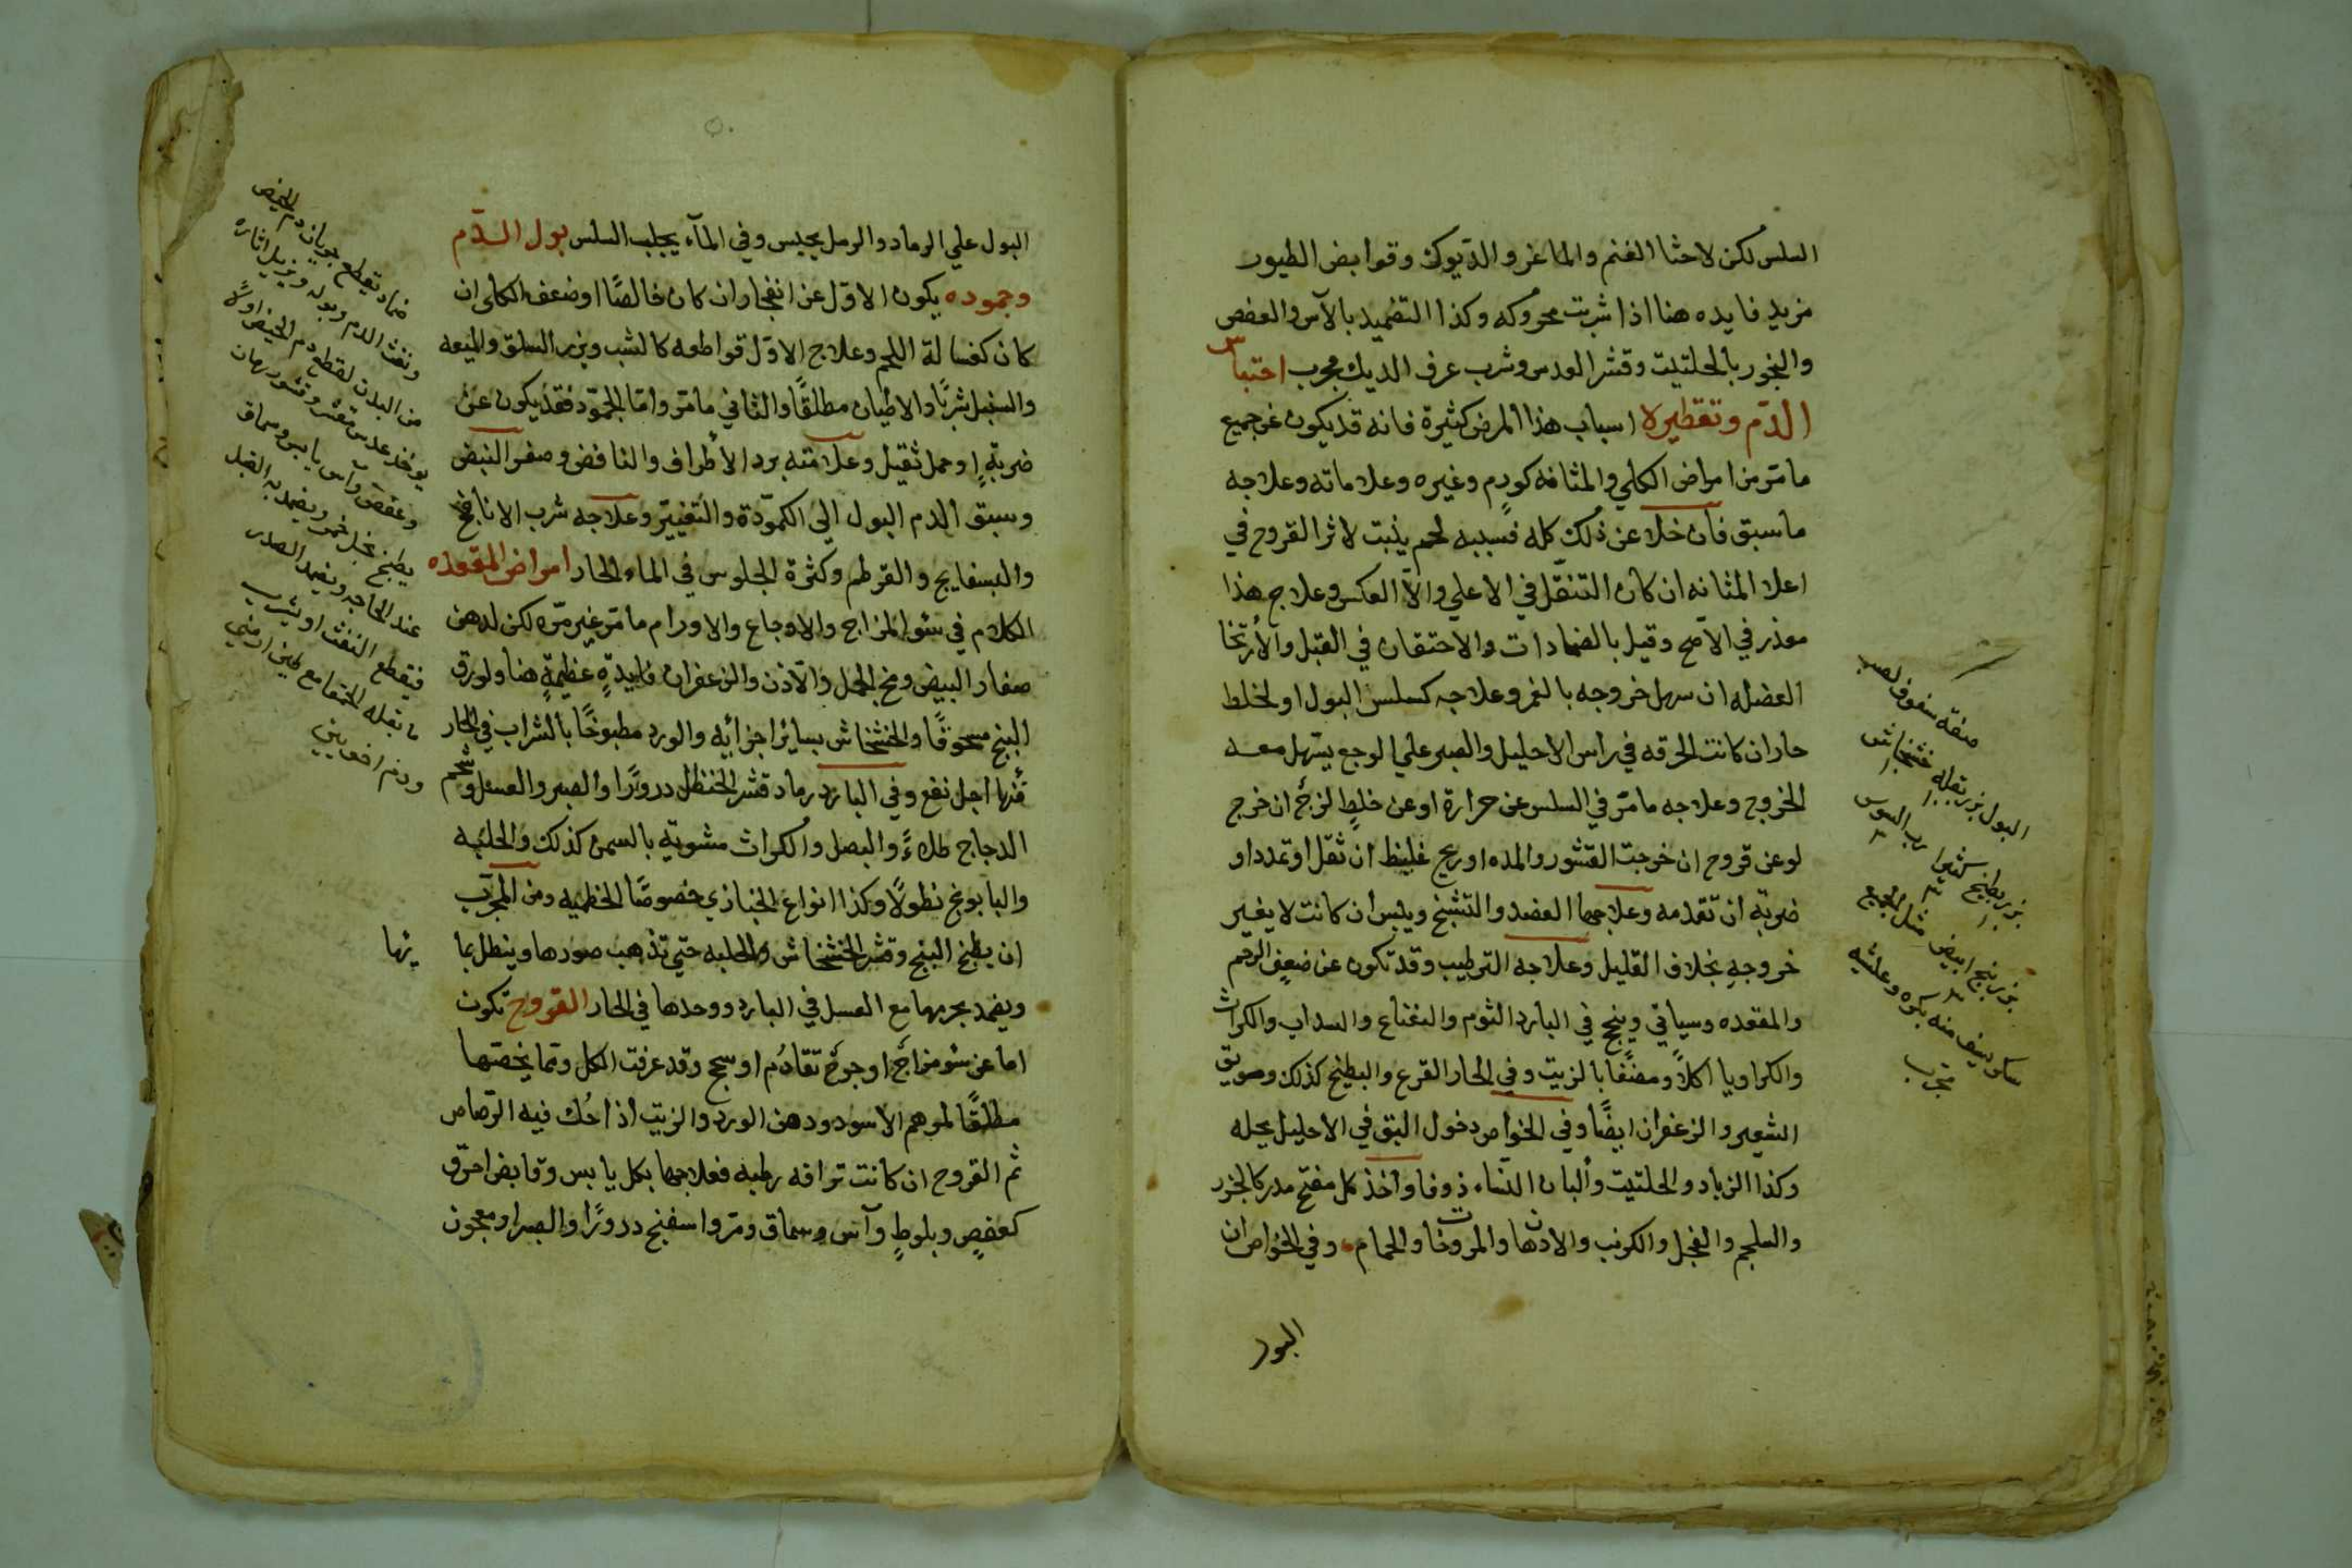 السلس لكن لاحشا الغنم والماعز والديوك وقوابض الطيور
مزيد فايده هنا اذا شربت محروكه وكذا التضميد بالآس والعفص
والبخور بالحلتيت وقشر العدس وشرب عرف الديك مجرب احتباس
الدم وتقطيره اسباب هذا المرض كثيرة فانه قد يكون عن جميع
ما مر من امراض الكلي والمثانه كورم وغيره وعلاماته وعلاجه
ما سبق فان خلا عن ذلك كله فسببه لحم ينبت لاثر القروح في
اعلا المثانه ان كان التنقل في الاعلي والا العكس وعلاج هذا
معذر في الاصح وقيل بالضمادات والاحتقان في القبل والارتخا
العضله ان سهل خروجه بالغمر وعلاجه كسلس البول او لخلط
حار ان كانت الحرقه في راس الاحليل والصبر علي الوجع يسهل معه
الخروج وعلاجه ما مر في السلس عن حرارة او عن خلط لزج ان خرج
لو عن قروح ان خرجت القشور والمده او ريح غليظ ان ثقل او تمدد او
ضربة ان تقدمه وعلاجها الفصد والتشنج ويبس ان كانت لا بغير
خروجه بخلاف القليل وعلاجه الترطيب وقد تكون عن ضعف الرحم
والمقعده وسياتي وينجح في البارد الثوم والنعناع والسداب والكراث
والكراويا اكلاً ومضغاً بالزيت وفي الحار القرع والبطيخ كذلك وسويق
الشعير والزعفران ايضاً وفي الخواص دخول البق في الاحليل يحله
وكذا الزباد والحلتيت وألبان النساء ذوفا واخذ كل مفتح مدر كالجزر
والسلجم والفجل والكرنب والادهان والمروخات والحمام وفي الخواص ان
البول
صفة سفوف لصب
البول بزر بقله خشخاش
بزر بطيخ كثيرا رب السوس
بزر بنج ابيض مثل الجميع
سكر يسف منه بكره وعشيه
مجرب
البول علي الرماد والرمل يحبس وفي المآء يجلب السلس بول الدم
وجموده يكون الاول عن انفجار ان كان خالصاً او ضعف الكلى ان
كان كغسالة اللحم وعلاج الاول قواطعه كالشب وبزر السلق والميعه
والسنبل شرباً والاطيان مطلقاً والثاني ما مر واما الجمود فقد يكون عن
ضربة او حمل ثقيل وعلامته برد الأطراف والنافض وصغر النبض
وسبق الدم البول الي الكمودة والتغيير وعلاجه شرب الانافح
والبسفايج والقرطم وكثرة الجلوس في الماء الحار امراض المقعده
الكلام في سؤ المزاج والاوجاع والاورام ما مر غير مره لكن لدهن
صفار البيض ومخ الجمل والآذن والزعفران فايدة عظيمة هنا ولورق
البنج مسحوقاً والخشخاش بساير اجزايه والورد مطبوخاً بالشراب في الحار
منها اجل نفع وفي البارد رماد قشر الحنظل درورًا والصبر والعسل وشحم
الدجاج طلاءً والبصل والكراث مشوية بالسمن كذلك والحلبه
والبابونج نطولاً وكذا انواع الخبازي خصوصًا الخطميه ومن المجرب
ان يطبخ البنج وقشر الخشخاش والحلبه حتي تذهب صورها وينطل بما
يها
ويضمد بجرمها مع العسل في البارد ووحدها في الحار القروح تكون
اما عن سؤ مزاج او جرح تقادم او سحج وقد عرفت الكل ومما يخصها
مطلقًا لمرهم الاسود ودهن الورد والزيت اذا حُك فيه الرصاص
ثم القروح ان كانت ترافه رطبه فعلاجها بكل يابس وقابض احرق
كعفصٍ وبلوطٍ وآس وسماق ومر واسفنج درورًا والصبر او معجون
ضماد يقطع جريان دم الحيض
ونفث الدم وبوله ويزيل اثاره
من البدن لقطع دم الحيض اولاً
يوخذ عدس مقشر وقشور رمان
وعفص وآس يابس وسماق
يطبخ بخل خمر ويضمد به القبل
عند الحاجه ويضمد الصدر
فيقطع النفث او يشرب
ماء بقله الحمقا مع طين ارمني
ودم اخوين